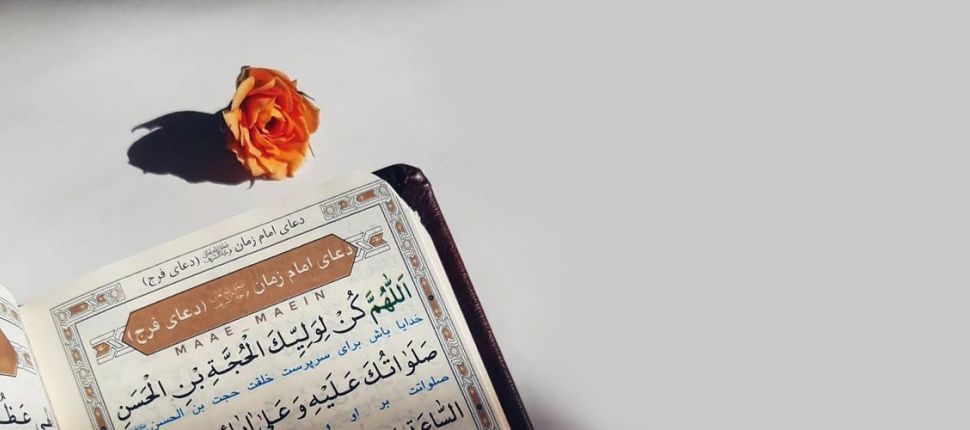 دعای امام زمان (دعای فرج)
دعای امام زمان (دعای فرج)
MAAE_MAEIN
اَللّٰهُمَّ كُنْ لِوَلِيِّكَ الْحُجَّةِ بْنِ الْحَسَنِ
خدایا باش برای سرپرست خلقت حجت بن الحسن
صَلَوَاتُكَ عَلَيْهِ وَ عَلىٰ
صلواتت بر او و